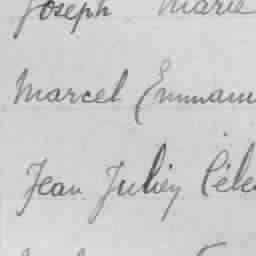 Joseph Marie
Marcel Emmanu
Jean Julien Céle